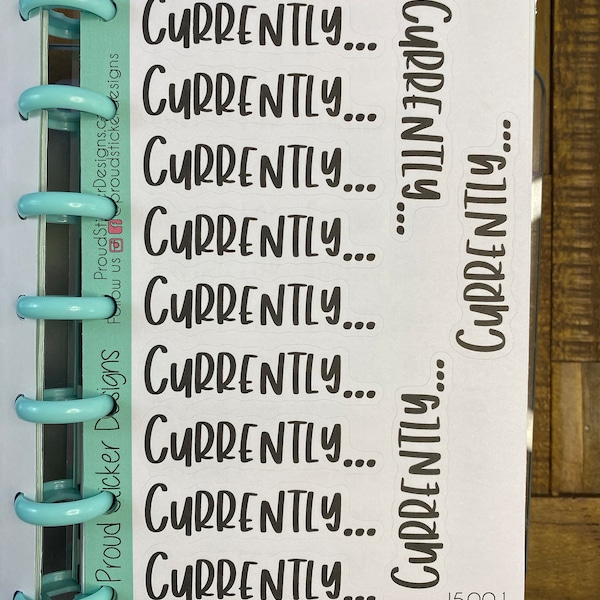 CURRENTLY...
CURRENTLY...
CURRENTLY...
CURRENTLY...
CURRENTLY...
CURRENTLY...
CURRENTLY...
CURRENTLY...
CURRENTLY...
CURRENTLY...
CURRENTLY...
CURRENTLY...
Proud Sticker Designs
Follow us @proudstickerdesigns